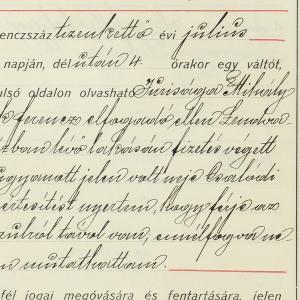 enczszáz tizenkettő évi július
napján, délután 4. órakor egy váltót,
ulsó oldalon olvasható Mihály
ferencz elfogadó ellen Lendva
ban lévő lakásán fizetés végett
ugyanott jelen volt neje Családi
értesítést nyertem, hogy férje az
távol van, ennélfogva ne
n mutathattam.
fél jogai megóvására és fentartására, jelen